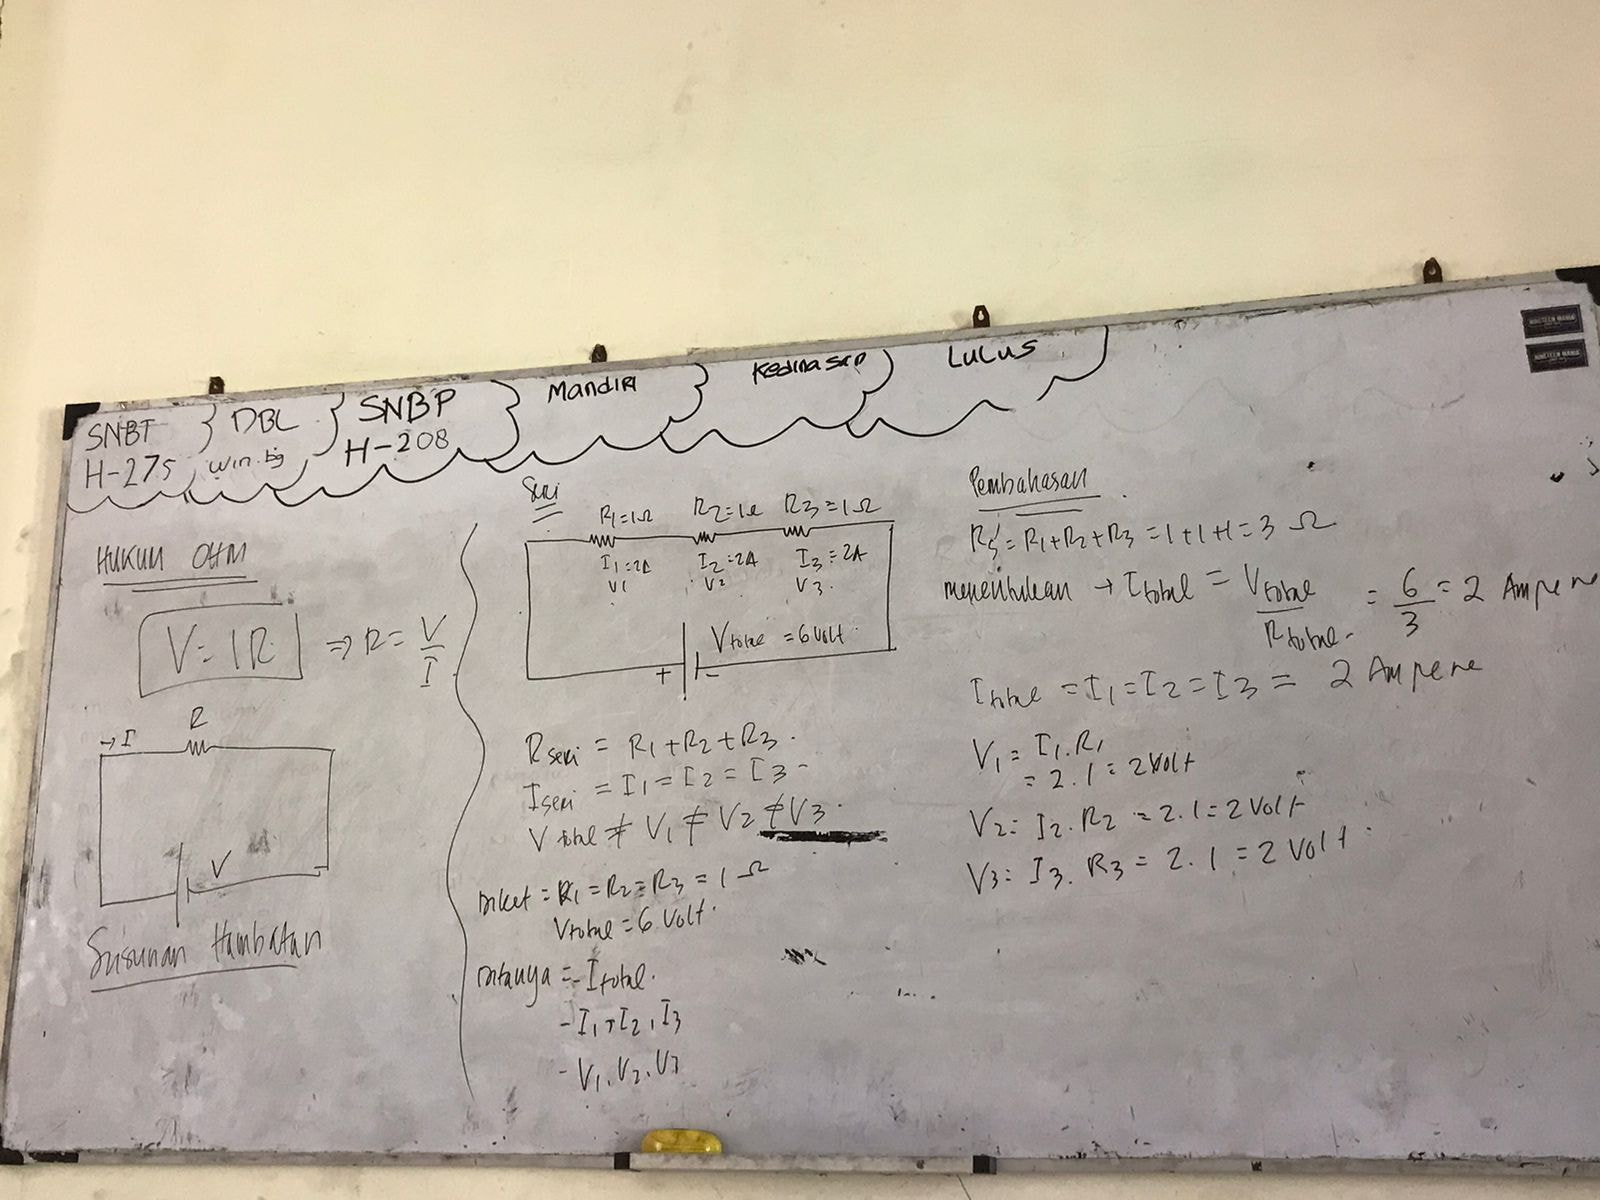 SNBT
H-275
DBL
win.bg
SNBP
H-208
Mandiri
Kedinasan
LULUS
NINETEEN MANIA
NINETEEN MANIA
HUKUM OHM
V = I R ⇒ R = V/I
→ I
R
V
Susunan Hambatan
Seri
R1=1Ω R2=1Ω R3=1Ω
I1=2A I2=2A I3=2A
V1 V2 V3.
Vtotal = 6 Volt.
+ -
Rseri = R1+R2+R3.
Iseri = I1=I2=I3-
Vtotal ≠ V1 ≠ V2 ≠ V3.
Diket = R1=R2=R3=1Ω
Vtotal = 6 Volt.
Ditanya = - Itotal.
- I1, I2, I3
- V1, V2, V3
Pembahasan
Rs = R1+R2+R3 = 1+1+1 = 3 Ω
menentukan → Itotal = Vtotal/Rtotal. = 6/3 = 2 Ampere
Itotal = I1 = I2 = I3 = 2 Ampere
V1 = I1.R1
= 2.1 = 2 Volt
V2 = I2.R2 = 2.1 = 2 Volt
V3 = I3.R3 = 2.1 = 2 Volt